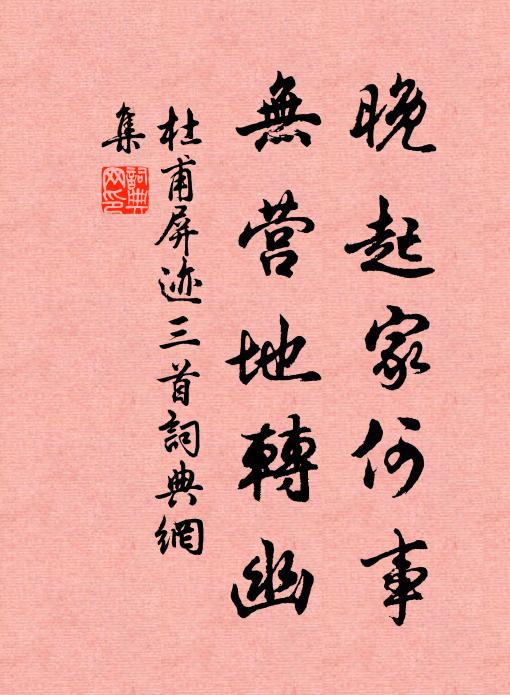 晚起家何事
無营地轉幽
杜甫屏迹三首詞典網
集
詞典
网印